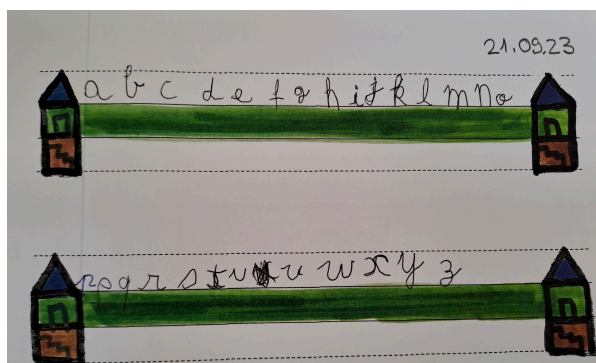 21.09.23
a b c d e f g h i j k l m n o
p q r s t u v w x y z